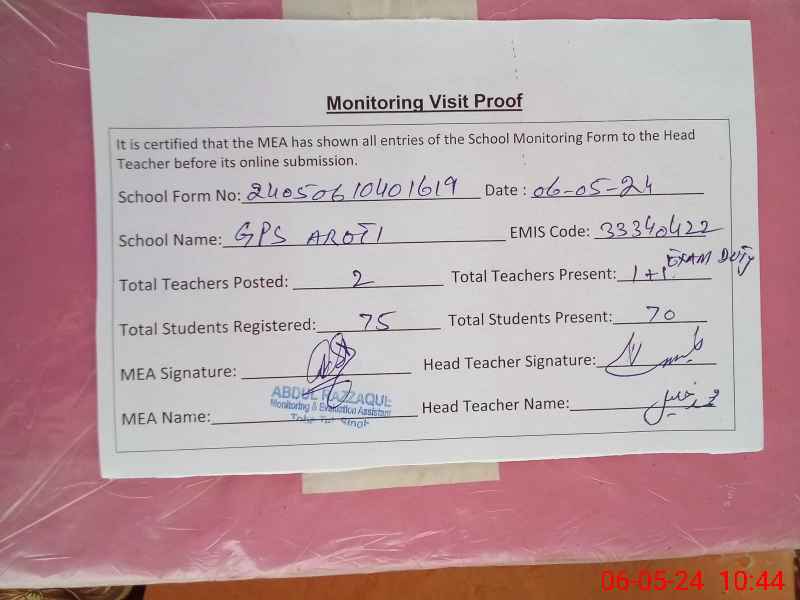 Monitoring Visit Proof
It is certified that the MEA has shown all entries of the School Monitoring Form to the Head
Teacher before its online submission.
School Form No: 24050610401619 Date : 06-05-24
School Name: GPS AROTI EMIS Code: 33340422
Total Teachers Posted: 2 Total Teachers Present: 1+1 EXAM DUTY
Total Students Registered: 75 Total Students Present: 70
MEA Signature: Head Teacher Signature:
ABDUL RAZZAQUE
Monitoring & Evaluation Assistant
MEA Name: Head Teacher Name:
06-05-24 10:44